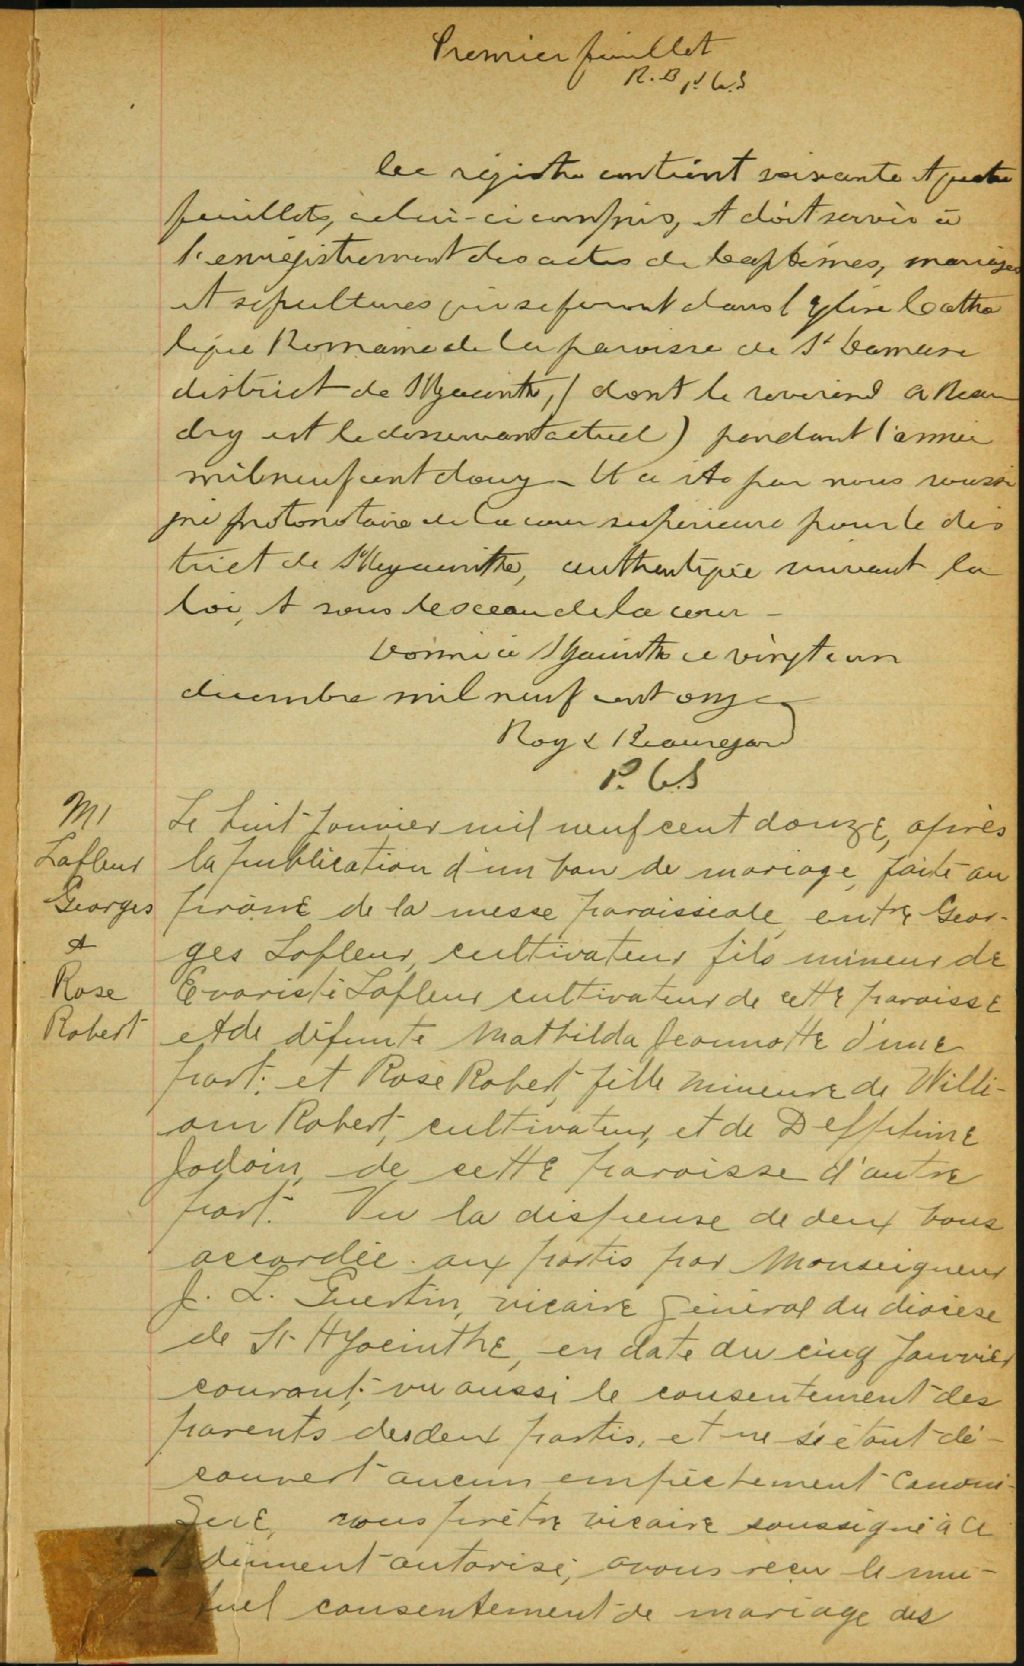 Premier feuillet
R. B P.C.S
Ce régistre contient soixante et quatre
feuillets, celui-ci compris, et doit servir à
l'enrégistrement des actes de baptêmes, mariages
et sépultures qui se feront dans l'Eglise Catho
lique Romaine de la paroisse de St Damase
district de St Hyacinthe, (dont le révérend A Beau
dry est le desservant actuel) pendant l'année
mil neuf cent douze - Il a été par nous soussi
gné protonotaire de la cour supérieure pour le dis
trict de St Hyacinthe, authentiquée suivant la
loi, et sous le sceau de la cour -
Donné à St Hyacinthe ce vingt un
decembre mil neuf cent onze
Roy & Beauregard
P. C.S
M1
Lafleur
Georges
et
Rose
Robert
Le huit Janvier mil neuf cent douze, après
la publication d'un ban de mariage, faite au
prône de la messe paroissiale, entre Geor-
ges Lafleur, cultivateur, fils mineur de
Evariste Lafleur cultivateur de cette paroisse
et de défunte Mathilda Jeannotte d'une
part: et Rose Robert, fille mineure de Willi-
am Robert, cultivateur, et de Delphine
Jodoin, de cette paroisse d'autre
part. Vu la dispense de deux bans
accordée aux partis par Monseigneur
J. L. Guertin, vicaire général du diocèse
de St Hyacinthe, en date du cinq Janvier
courant; vu aussi le consentement des
parents des deux partis, et ne s'étant dé-
couvert aucun empêchement canoni-
que, nous prêtre vicaire soussigné à ce
dûment autorisé, avons reçu le mu-
tuel consentement de mariage des